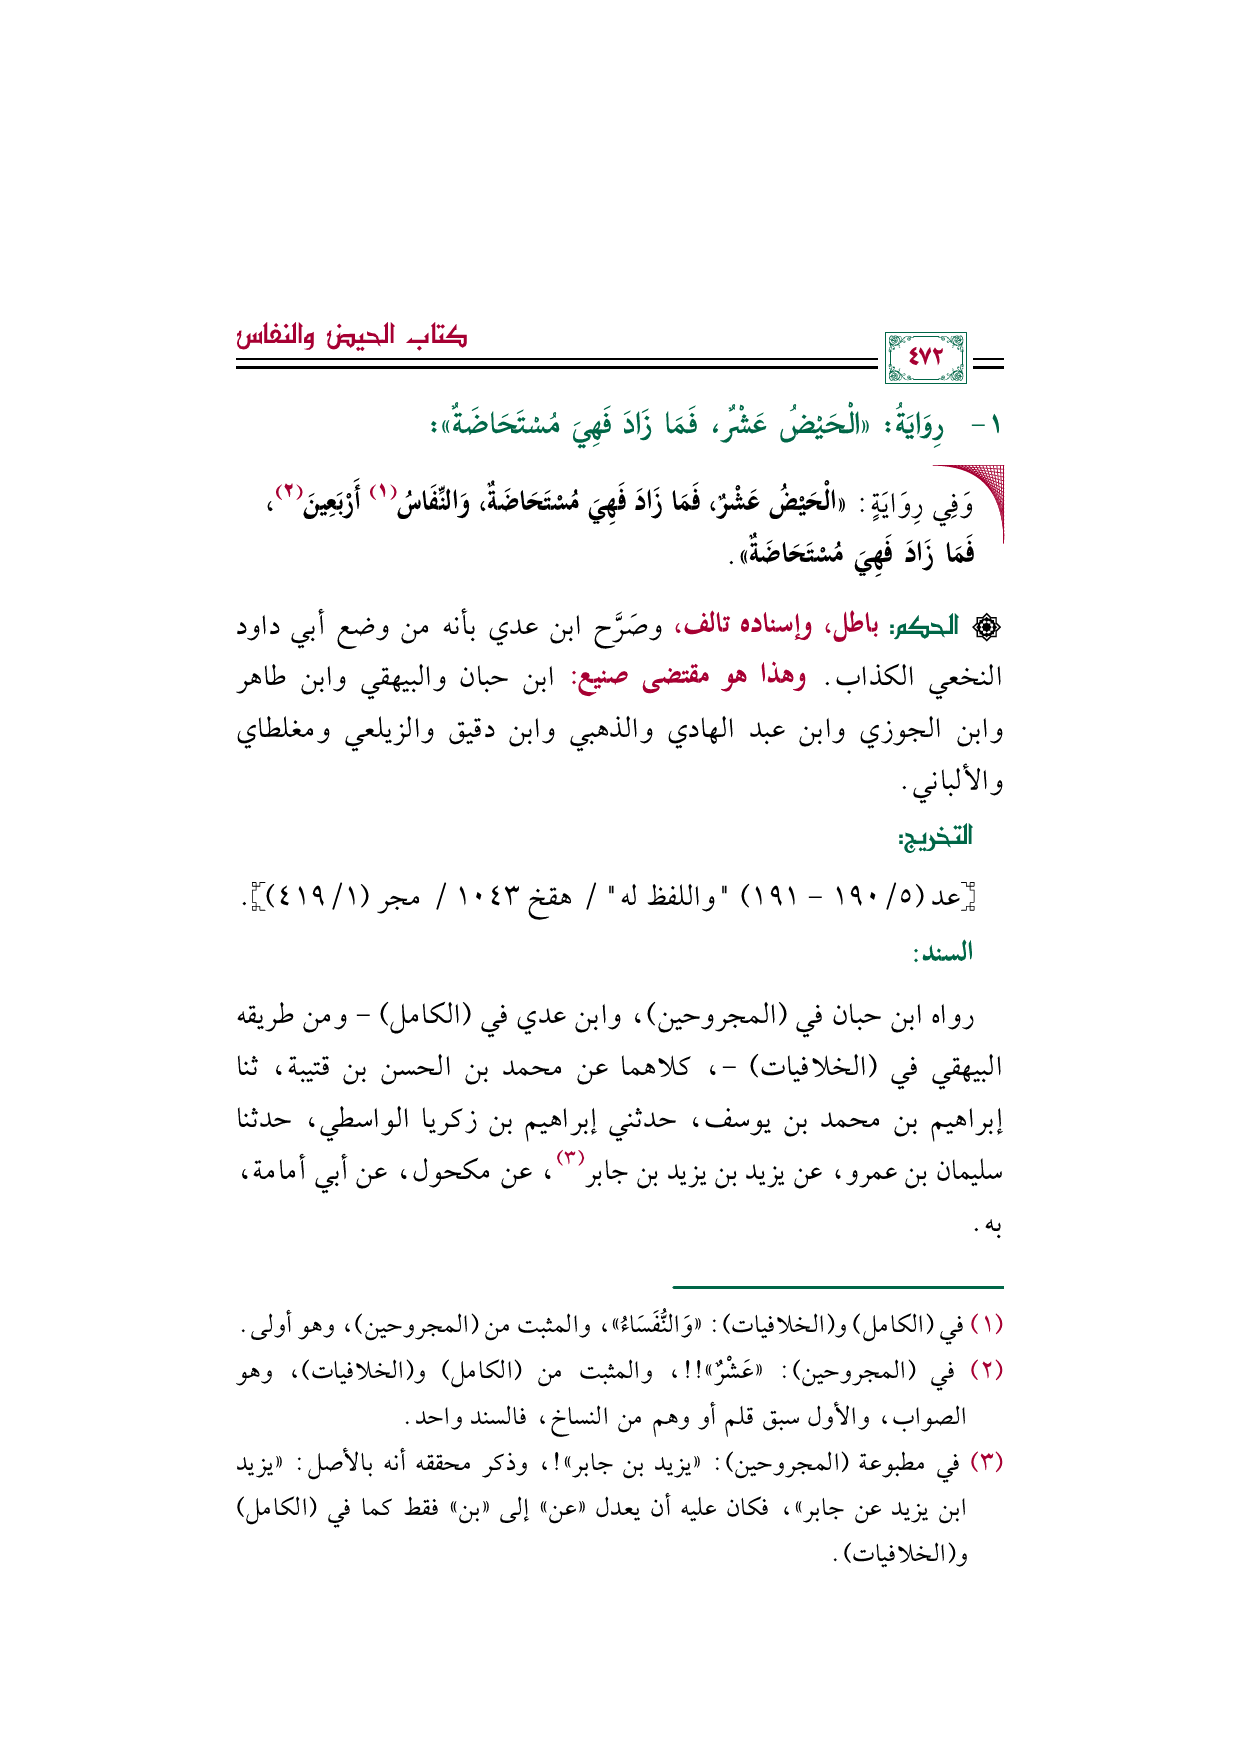 كتاب الحيض والنفاس
٤٧٢
١- رِوَايَةُ: «الْحَيْضُ عَشْرٌ، فَمَا زَادَ فَهِيَ مُسْتَحَاضَةٌ»:
وَفِي رِوَايَةٍ: «الْحَيْضُ عَشْرٌ، فَمَا زَادَ فَهِيَ مُسْتَحَاضَةٌ، وَالنِّفَاسُ(١) أَرْبَعِينَ(٢)،
فَمَا زَادَ فَهِيَ مُسْتَحَاضَةٌ».
الحكم: باطل، وإسناده تالف، وصَرَّح ابن عدي بأنه من وضع أبي داود
النخعي الكذاب. وهذا هو مقتضى صنيع: ابن حبان والبيهقي وابن طاهر
وابن الجوزي وابن عبد الهادي والذهبي وابن دقيق والزيلعي ومغلطاي
والألباني.
التخريج:
[عد (٥/ ١٩٠ - ١٩١) "واللفظ له" / هقخ ١٠٤٣ / مجر (١/ ٤١٩)].
السند:
رواه ابن حبان في (المجروحين)، وابن عدي في (الكامل) - ومن طريقه
البيهقي في (الخلافيات) -، كلاهما عن محمد بن الحسن بن قتيبة، ثنا
إبراهيم بن محمد بن يوسف، حدثني إبراهيم بن زكريا الواسطي، حدثنا
سليمان بن عمرو، عن يزيد بن يزيد بن جابر(٣)، عن مكحول، عن أبي أمامة،
به.
(١) في (الكامل) و(الخلافيات): «وَالنُّفَسَاءُ»، والمثبت من (المجروحين)، وهو أولى.
(٢) في (المجروحين): «عَشْرٌ»!!، والمثبت من (الكامل) و(الخلافيات)، وهو
الصواب، والأول سبق قلم أو وهم من النساخ، فالسند واحد.
(٣) في مطبوعة (المجروحين): «يزيد بن جابر»!، وذكر محققه أنه بالأصل: «يزيد
ابن يزيد عن جابر»، فكان عليه أن يعدل «عن» إلى «بن» فقط كما في (الكامل)
و(الخلافيات).